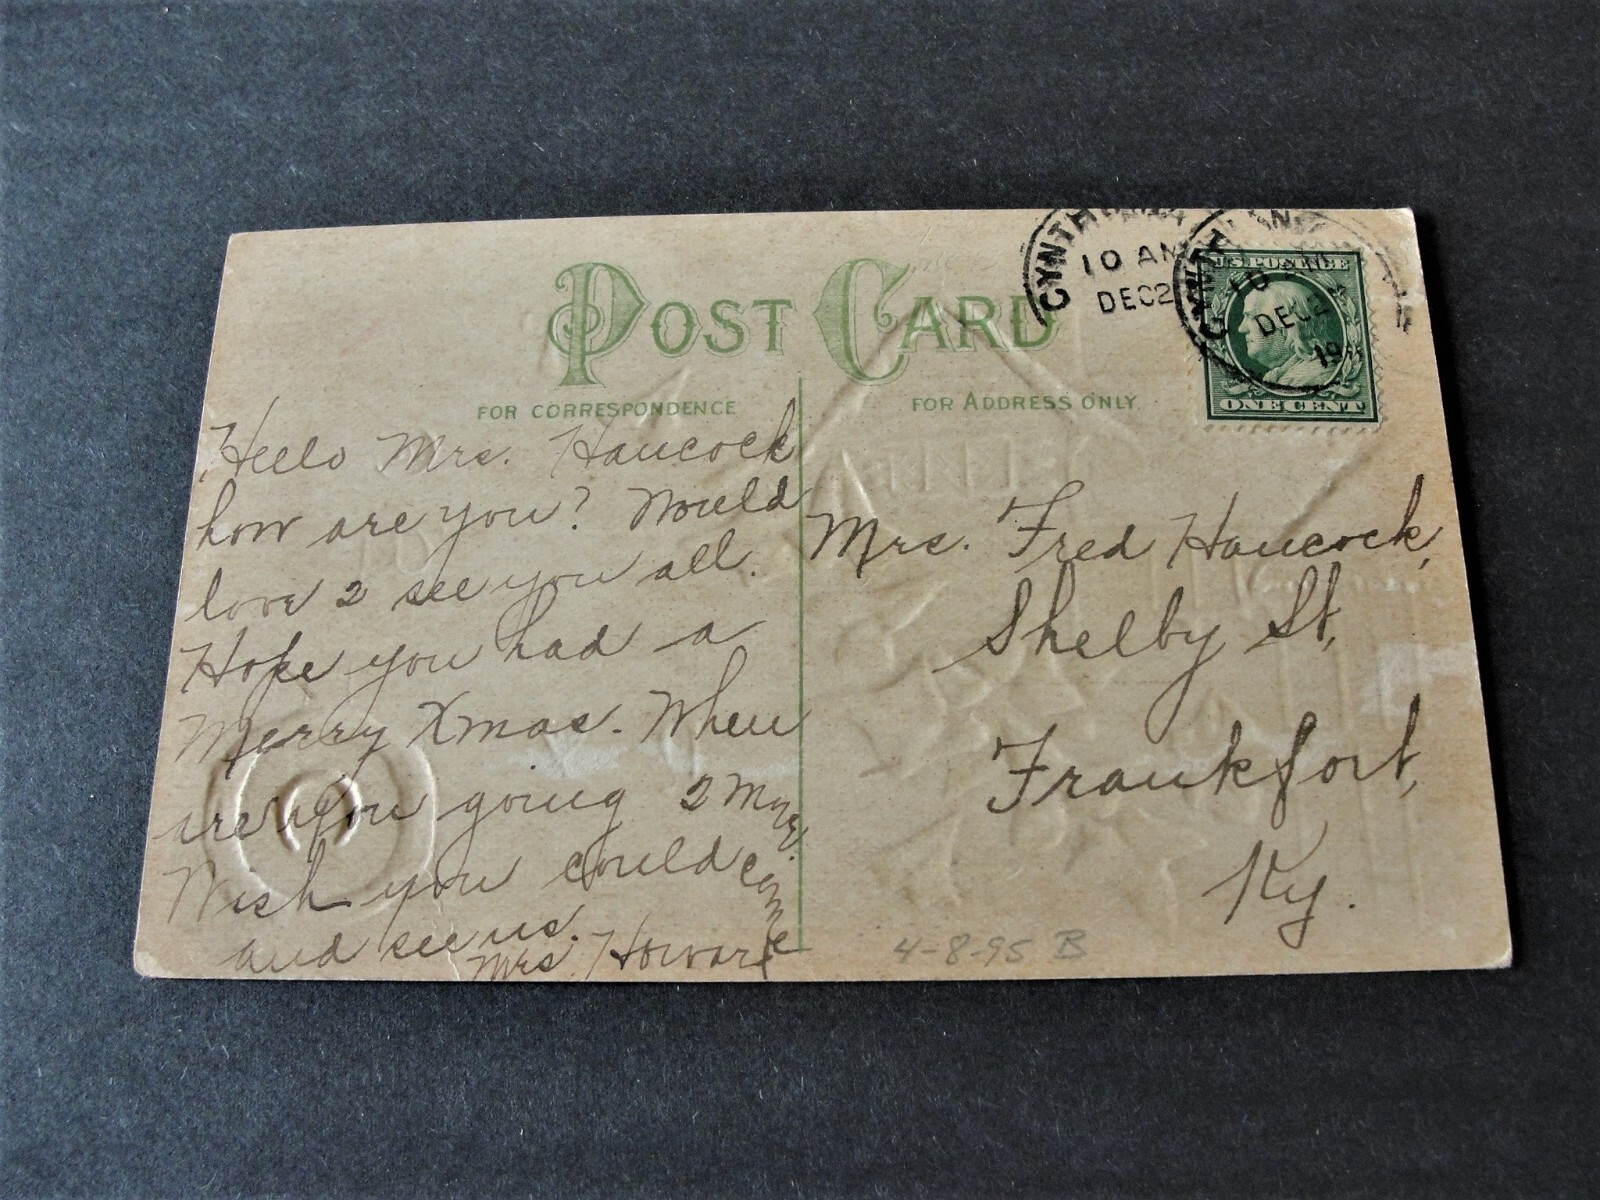 POST CARD
FOR CORRESPONDENCE
FOR ADDRESS ONLY
10 AM
DEC 2
DEC 2
19
U.S. POSTAGE
ONE CENT
Hello Mrs. Hancock
how are you? Would
love 2 see you all.
Hope you had a
Merry Xmas. When
are you going 2 Move.
Wish you could come
and see us.
Mrs Howard
Mrs. Fred Hancock,
Shelby St,
Frankfort,
Ky.
4-8-95 B